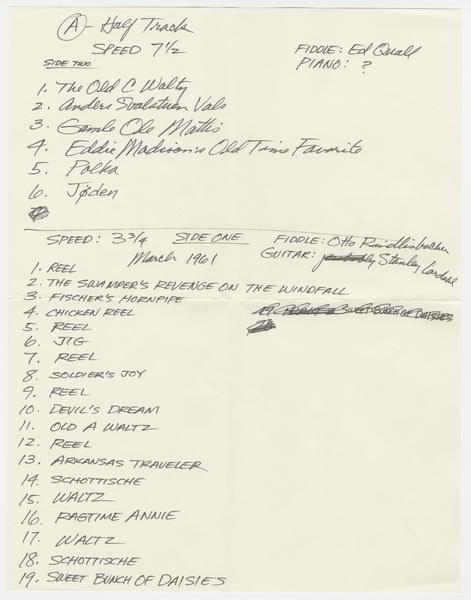 (A) - Half Track
SPEED 7 1/2 FIDDLE: Ed Quall
SIDE TWO PIANO: ?
1. The Old C Waltz
2. Anders Vals
3. Gamle Ole Mattis
4. Eddie Madison's Old Time Favorite
5. Polka
6. Jøden
SPEED: 3 3/4 SIDE ONE FIDDLE: Otto Rindlisbacher
March 1961 GUITAR: Stanley
1. REEL
2. THE SWAMPER'S REVENGE ON THE WINDFALL
3. FISCHER'S HORNPIPE
4. CHICKEN REEL 19. SWEET BUNCH OF DAISIES
5. REEL
6. JIG
7. REEL
8. SOLDIER'S JOY
9. REEL
10. DEVIL'S DREAM
11. OLD A WALTZ
12. REEL
13. ARKANSAS TRAVELER
14. SCHOTTISCHE
15. WALTZ
16. RAGTIME ANNIE
17. WALTZ
18. SCHOTTISCHE
19. SWEET BUNCH OF DAISIES